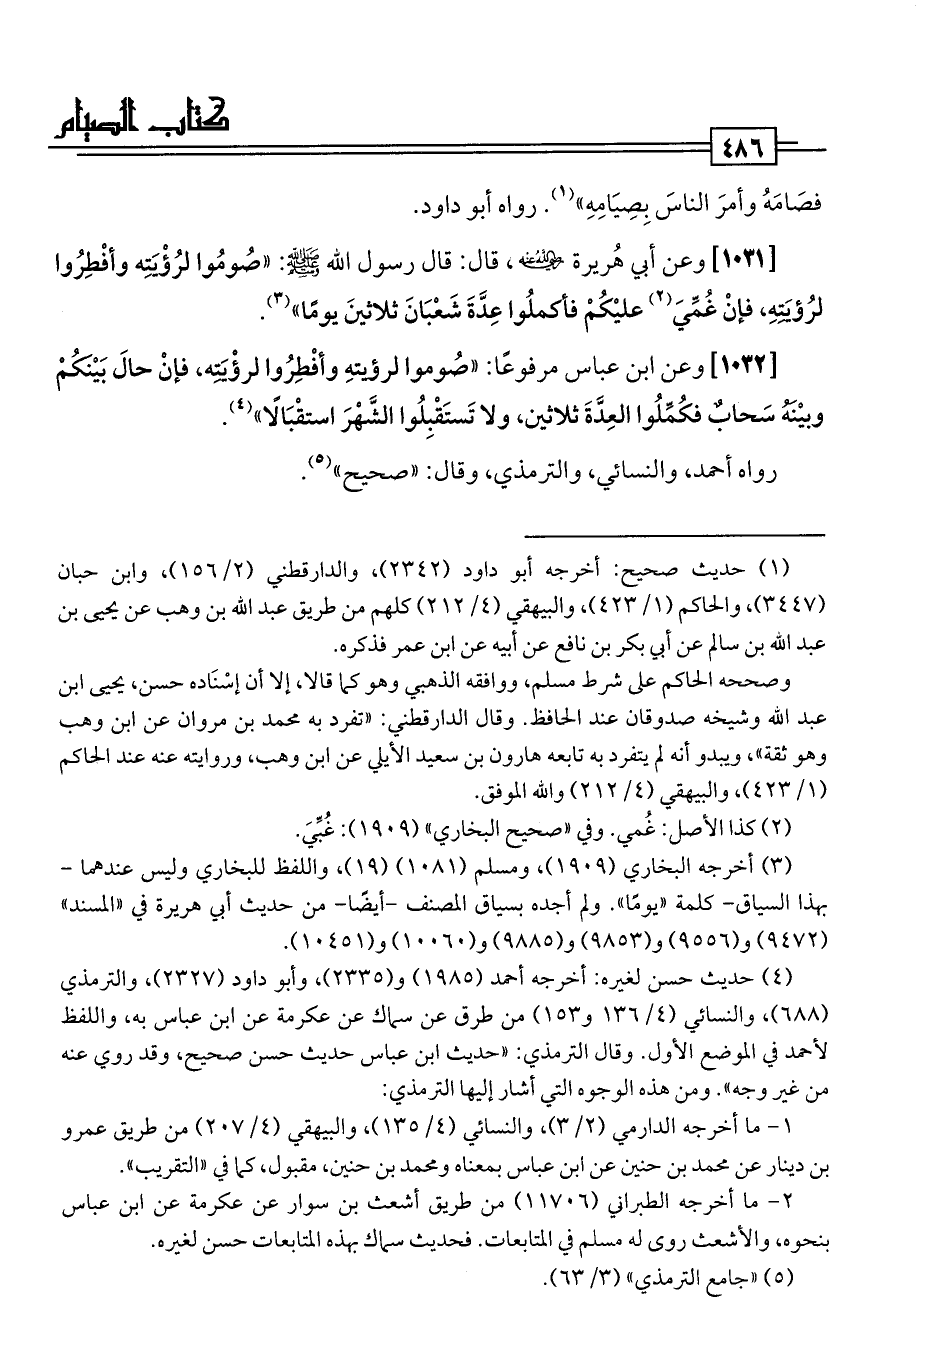 كتاب الصيام
٤٨٦
فصَامَهُ وأمرَ الناسَ بِصِيَامِهِ»(١). رواه أبو داود.
[١٠٣١] وعن أبي هُريرة رضي الله عنه، قال: قال رسول الله ﷺ: «صُومُوا لرُؤْيَتِه وأفْطِرُوا
لرُؤيَتِهِ، فإنْ غُمِّيَ(٢) عليْكُمْ فأكملُوا عِدَّةَ شَعْبَانَ ثلاثينَ يومًا»(٣).
[١٠٣٢] وعن ابن عباس مرفوعًا: «صُوموا لرؤيتهِ وأفْطِرُوا لرؤْيَتِه، فإنْ حالَ بَيْنَكُمْ
وبيْنَهُ سَحابٌ فكَمِّلُوا العِدَّةَ ثلاثين، ولا تَستَقْبِلُوا الشَّهْرَ استقْبَالًا»(٤).
رواه أحمد، والنسائي، والترمذي، وقال: «صحيح»(٥).
(١) حديث صحيح: أخرجه أبو داود (٢٣٤٢)، والدارقطني (٢/ ١٥٦)، وابن حبان
(٣٤٤٧)، والحاكم (١/ ٤٢٣)، والبيهقي (٤/ ٢١٢) كلهم من طريق عبد الله بن وهب عن يحيى بن
عبد الله بن سالم عن أبي بكر بن نافع عن أبيه عن ابن عمر فذكره.
وصححه الحاكم على شرط مسلم، ووافقه الذهبي وهو كما قالا، إلا أن إسْنَاده حسن، يحيى ابن
عبد الله وشيخه صدوقان عند الحافظ. وقال الدارقطني: «تفرد به محمد بن مروان عن ابن وهب
وهو ثقة»، ويبدو أنه لم يتفرد به تابعه هارون بن سعيد الأيلي عن ابن وهب، وروايته عنه عند الحاكم
(١/ ٤٢٣)، والبيهقي (٤/ ٢١٢) والله الموفق.
(٢) كذا الأصل: غُمي. وفي «صحيح البخاري» (١٩٠٩): غُبِّيَ.
(٣) أخرجه البخاري (١٩٠٩)، ومسلم (١٠٨١) (١٩)، واللفظ للبخاري وليس عندهما -
بهذا السياق- كلمة «يومًا». ولم أجده بسياق المصنف -أيضًا- من حديث أبي هريرة في «المسند»
(٩٤٧٢) و(٩٥٥٦) و(٩٨٥٣) و(٩٨٨٥) و(١٠٠٦٠) و(١٠٤٥١).
(٤) حديث حسن لغيره: أخرجه أحمد (١٩٨٥) و(٢٣٣٥)، وأبو داود (٢٣٢٧)، والترمذي
(٦٨٨)، والنسائي (٤/ ١٣٦ و١٥٣) من طرق عن سماك عن عكرمة عن ابن عباس به، واللفظ
لأحمد في الموضع الأول. وقال الترمذي: «حديث ابن عباس حديث حسن صحيح، وقد روي عنه
من غير وجه». ومن هذه الوجوه التي أشار إليها الترمذي:
١- ما أخرجه الدارمي (٢/ ٣)، والنسائي (٤/ ١٣٥)، والبيهقي (٤/ ٢٠٧) من طريق عمرو
بن دينار عن محمد بن حنين عن ابن عباس بمعناه ومحمد بن حنين، مقبول، كما في «التقريب».
٢- ما أخرجه الطبراني (١١٧٠٦) من طريق أشعث بن سوار عن عكرمة عن ابن عباس
بنحوه، والأشعث روى له مسلم في المتابعات. فحديث سماك بهذه المتابعات حسن لغيره.
(٥) «جامع الترمذي» (٣/ ٦٣).